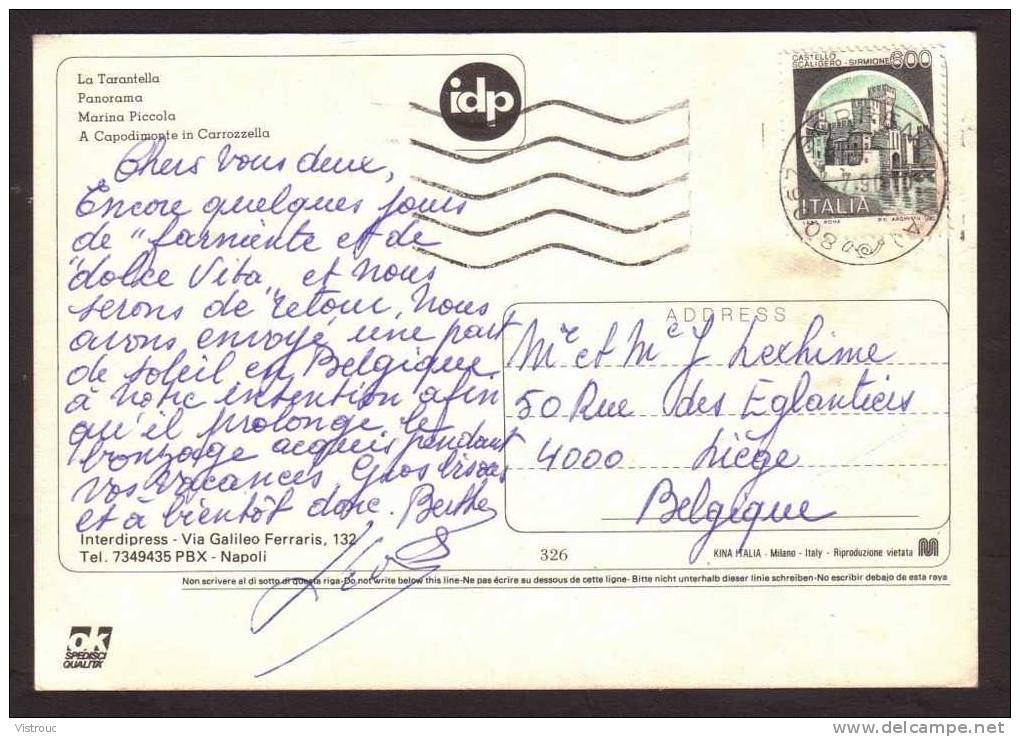 La Tarantella
Panorama
Marina Piccola
A Capodimonte in Carrozzella
idp
CASTELLO
SCALIGERO - SIRMIONE 600
ITALIA
Chers vous deux,
Encore quelques jours
de "farniente et de
dolce Vita" et nous
serons de retour. Nous
avons envoyé une part
de soleil en Belgique
à votre intention afin
qu'il prolonge le
bronzage acquis pendant
vos vacances. Gros bisous
et à bientôt donc. Berthe
ADDRESS
Mr et Me J
50 Rue des Eglantiers
4000 Liège
Belgique
Interdipress - Via Galileo Ferraris, 132
Tel. 7349435 PBX - Napoli
326
KINA ITALIA - Milano - Italy - Riproduzione vietata
Non scrivere al di sotto di questa riga-Do not write below this line-Ne pas écrire au dessous de cette ligne- Bitte nicht unterhalb dieser linie schreiben-No escribir debajo de esta raya
ok
SPEDISCI
QUALITÀ
Vistrouc
www.delcampe.net